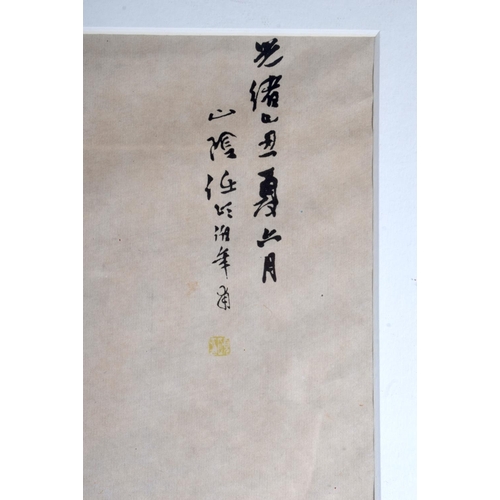 光緒己丑夏六月
山陰任頤伯年甫